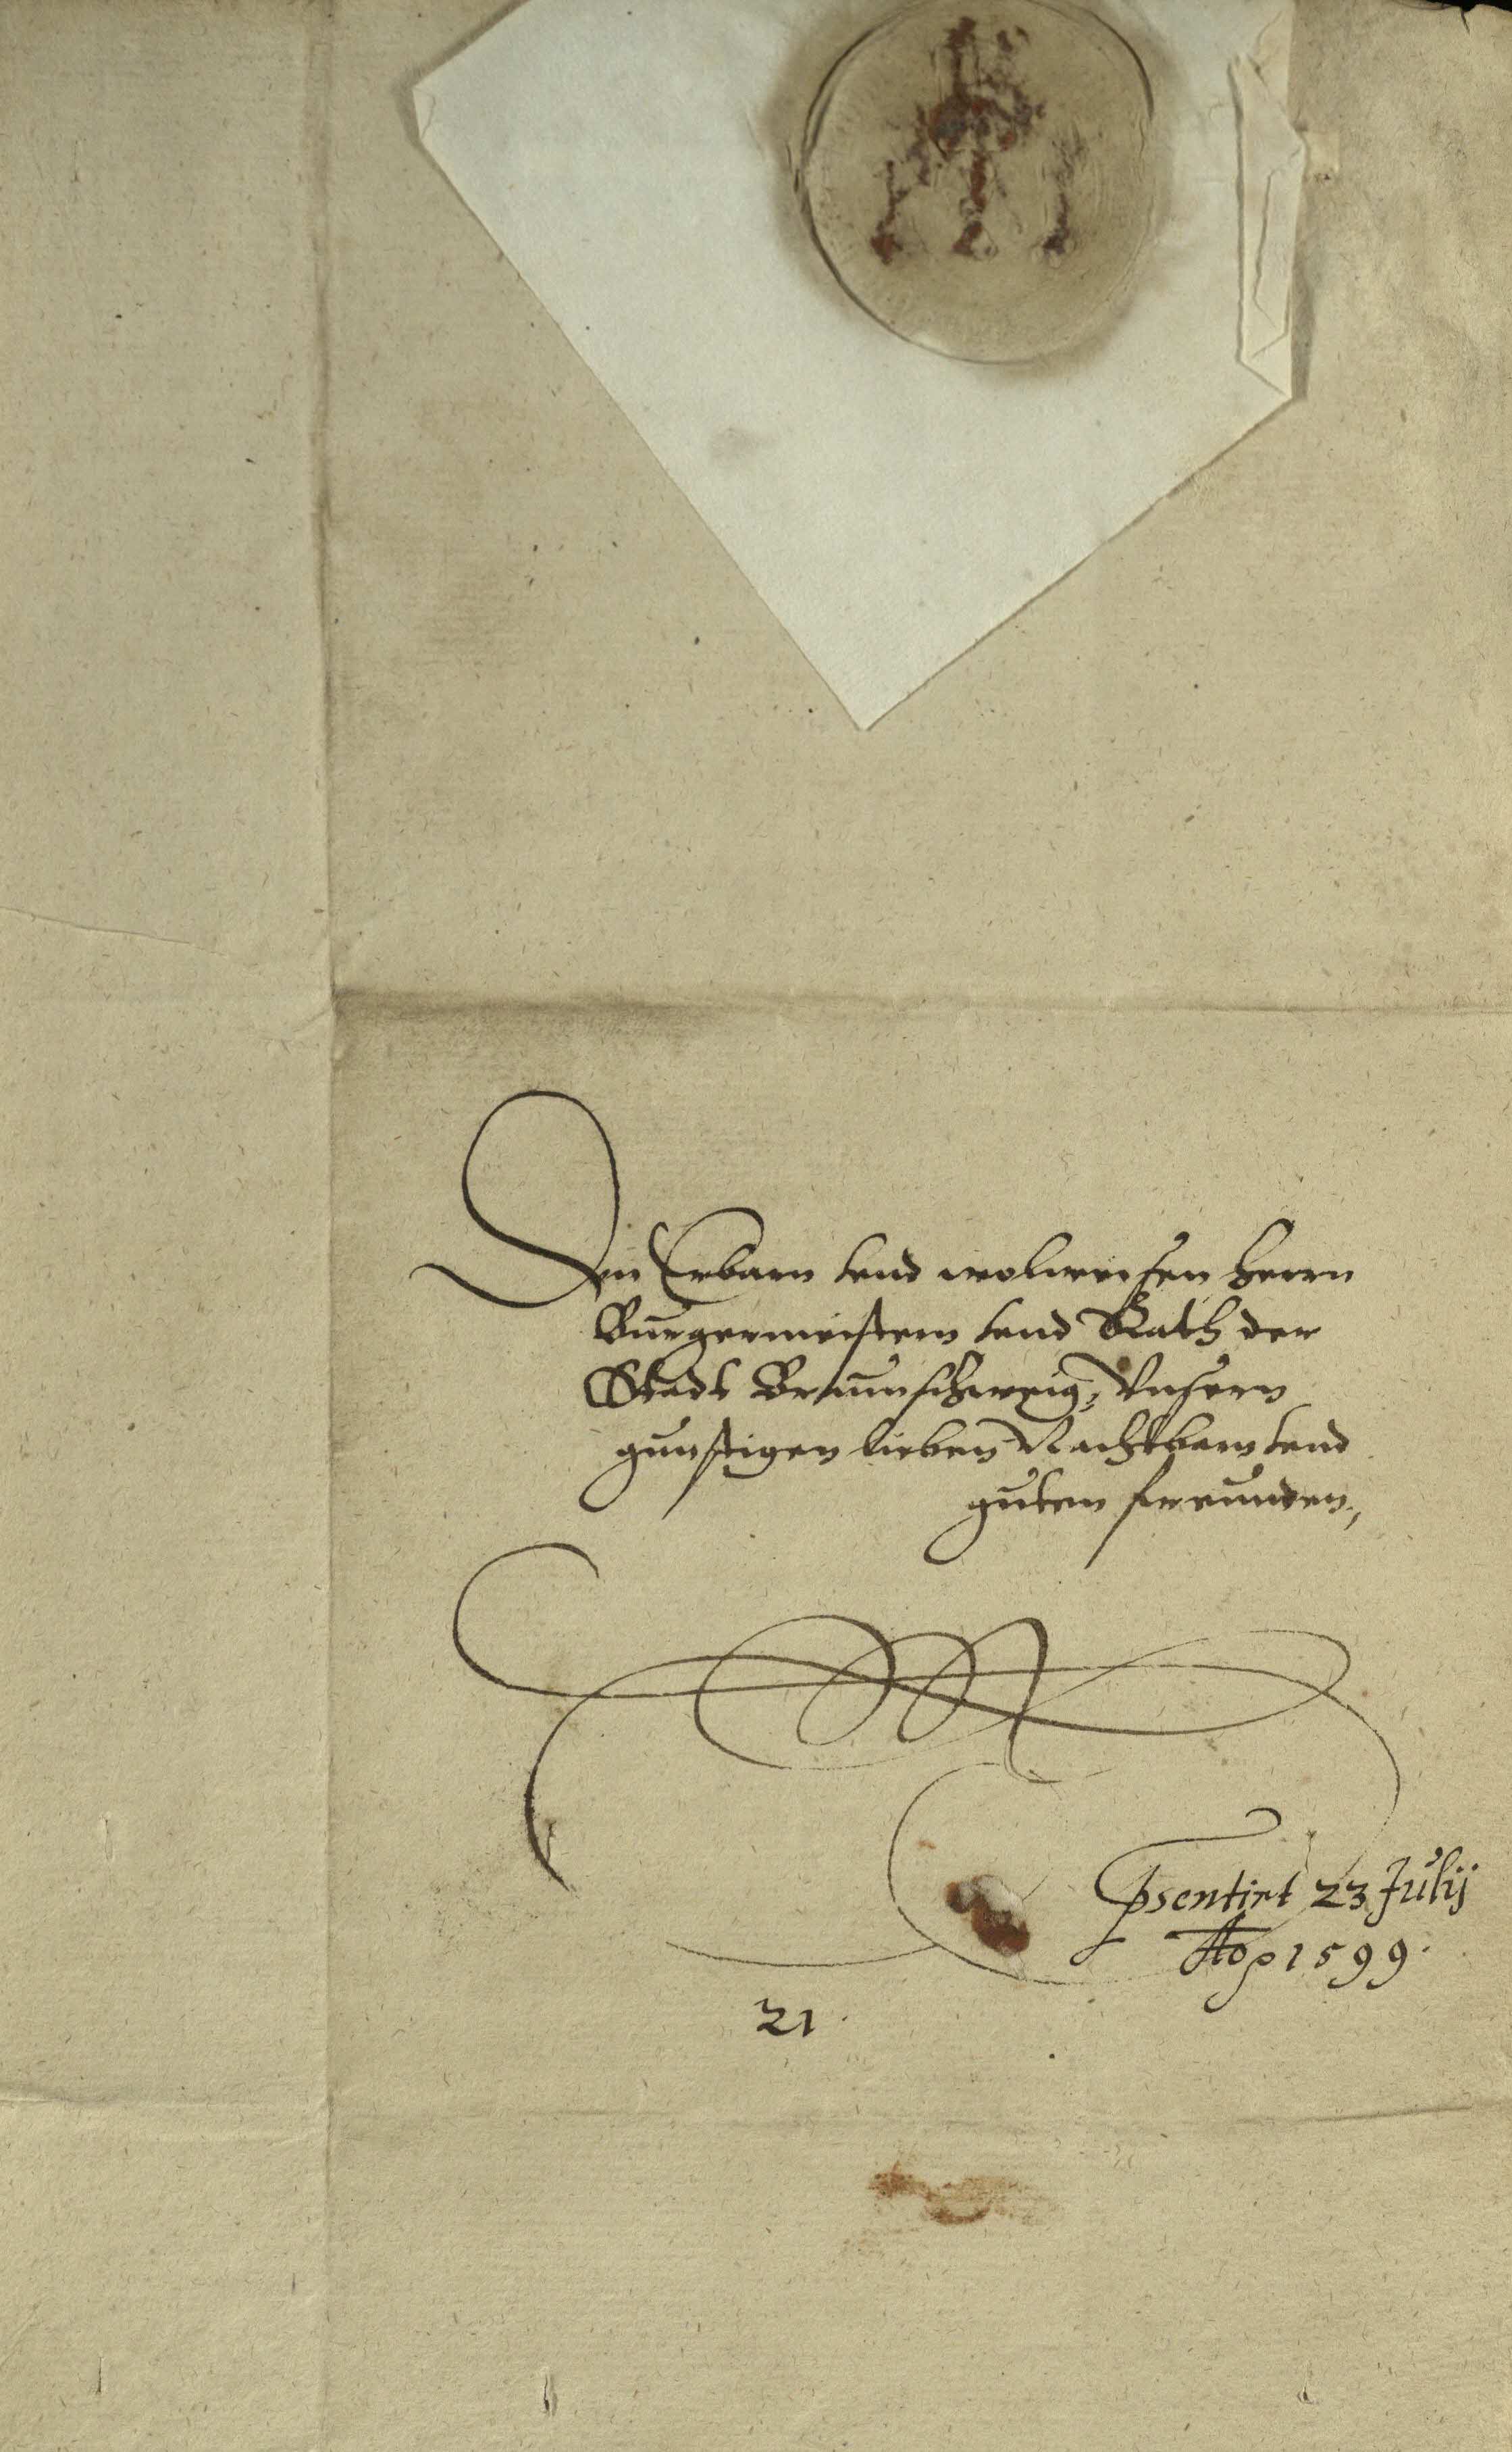 Den Erbarn vnd wolweisen herrn
Burgermeistern vnd Rath der
Stadt Braunschweig, Vnsern
gunstigen lieben Nachtbarn vnd
guten freunden,
psentirt 23 Julij
Ao 1599.
21.